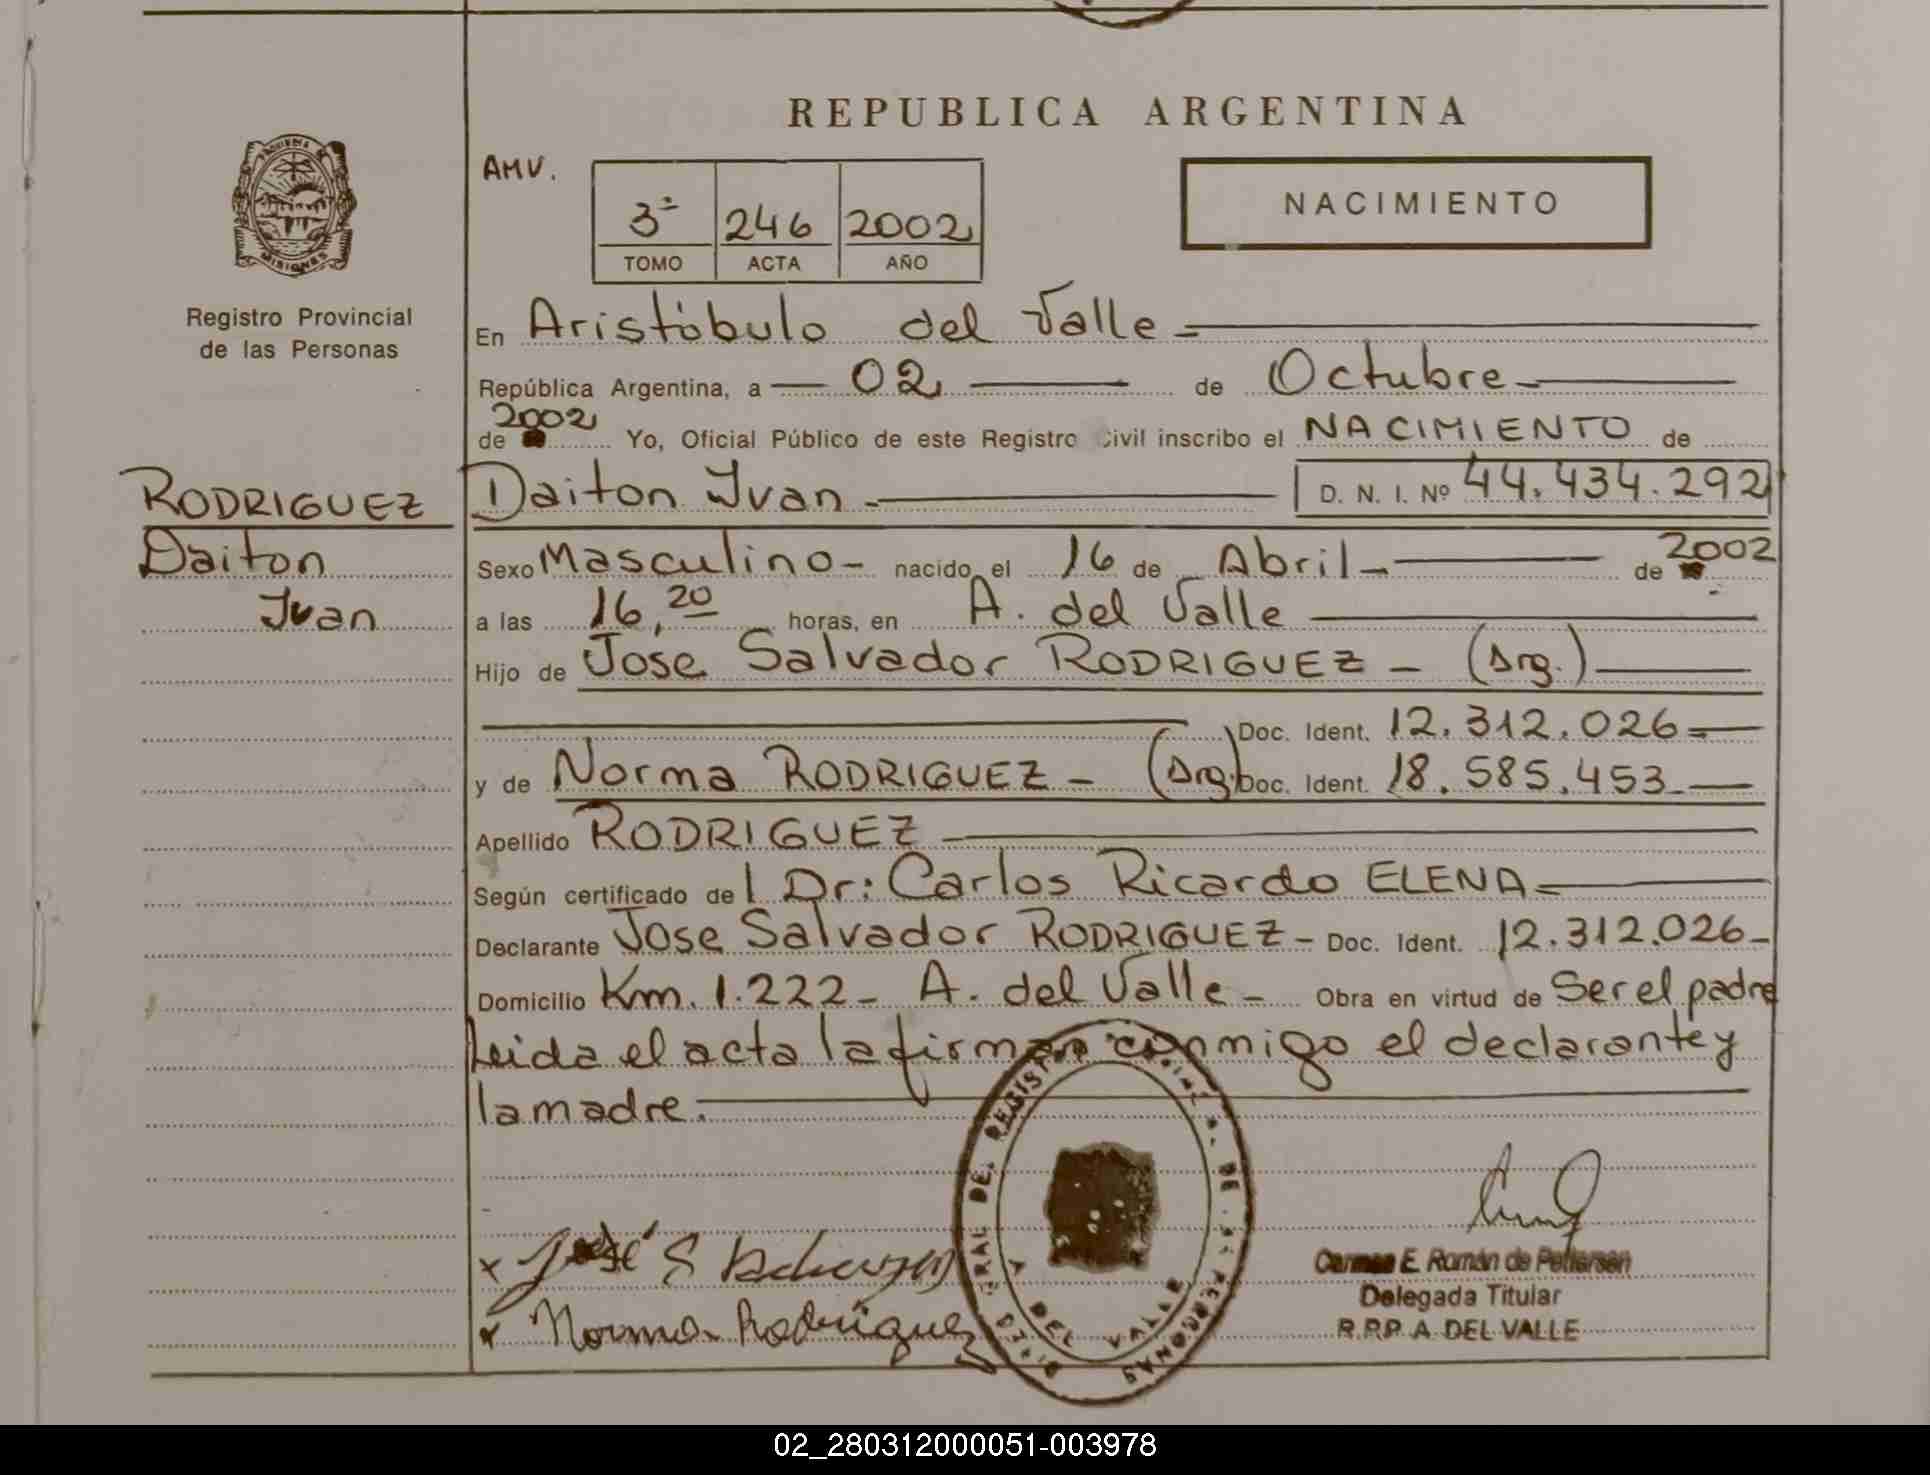 REPUBLICA ARGENTINA
AMV.
3ª 246 2002
TOMO ACTA AÑO
NACIMIENTO
MISIONES
Registro Provincial
de las Personas
En Aristóbulo del Valle
República Argentina, a 02 de Octubre
de 2002 Yo, Oficial Público de este Registro Civil inscribo el NACIMIENTO de
RODRIGUEZ
Daiton
Ivan
Daiton Ivan D. N. I. Nº 44.434.292
Sexo Masculino nacido el 16 de Abril de 2002
a las 16,20 horas, en A. del Valle
Hijo de Jose Salvador RODRIGUEZ - (Arg.)
Doc. Ident. 12.312.026
y de Norma RODRIGUEZ - (Arg.) Doc. Ident. 18.585.453
Apellido RODRIGUEZ
Según certificado del Dr: Carlos Ricardo ELENA
Declarante Jose Salvador RODRIGUEZ - Doc. Ident. 12.312.026
Domicilio Km. 1.222 - A. del Valle - Obra en virtud de Ser el padre
Leida el acta la firman conmigo el declarante y
la madre.
x José S
x Norma Rodriguez
DEL VALLE
Carmen E. Román de Petersen
Delegada Titular
R.P.P. A. DEL VALLE
02_280312000051-003978